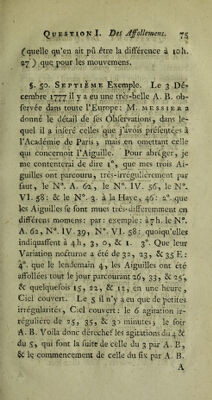 QUESTION I. Des Affollemens. 75
(quelle qu'en ait pû être la différence à 10h.
27) que pour les mouvemens.
§. 50. SEPTIÈME Exemple. Le 3 Dé-
cembre 1777 il y a eu une très-belle A. B. ob-
servée dans toute l'Europe: M. MESSIER a
donné le détail de ses Observations, dans le-
quel il a inséré celles que j'avois présentées à
l'Académie de Paris, mais en omettant celle
qui concernoit l'Aiguille. Pour abréger, je
me contenterai de dire 1°, que mes trois Ai-
guilles ont parcouru, très-irrégulièrement par
saut, le N°. A. 62, le N°. IV. 56, le N°.
VI. 58: & le N°. 3. à la Haye, 46: 2° que
les Aiguilles se sont mues très-différemment en
différens momens: par exemple: à 7 h. le N°.
A. 62, N°. IV. 39, N°. VI. 58: quoiqu'elles
indiquassent à 4 h, 3, 0, & 1. 3°. Que leur
Variation nocturne a été de 32, 23, & 35 E:
4°. que le lendemain 4, les Aiguilles ont été
affollées tout le jour parcourant 26, 33, & 25,
& quelquefois 15, 22, & 12, en une heure,
Ciel couvert. Le 5 il n'y a eu que de petites
irrégularités, Ciel couvert: le 6 agitation ir-
régulière de 25, 35, & 30 minutes; le soir
A. B. Voila donc derechef les agitations du 4 &
du 5, qui font la suite de celle du 3 par A. B,
& le commencement de celle du six par A. B.
A